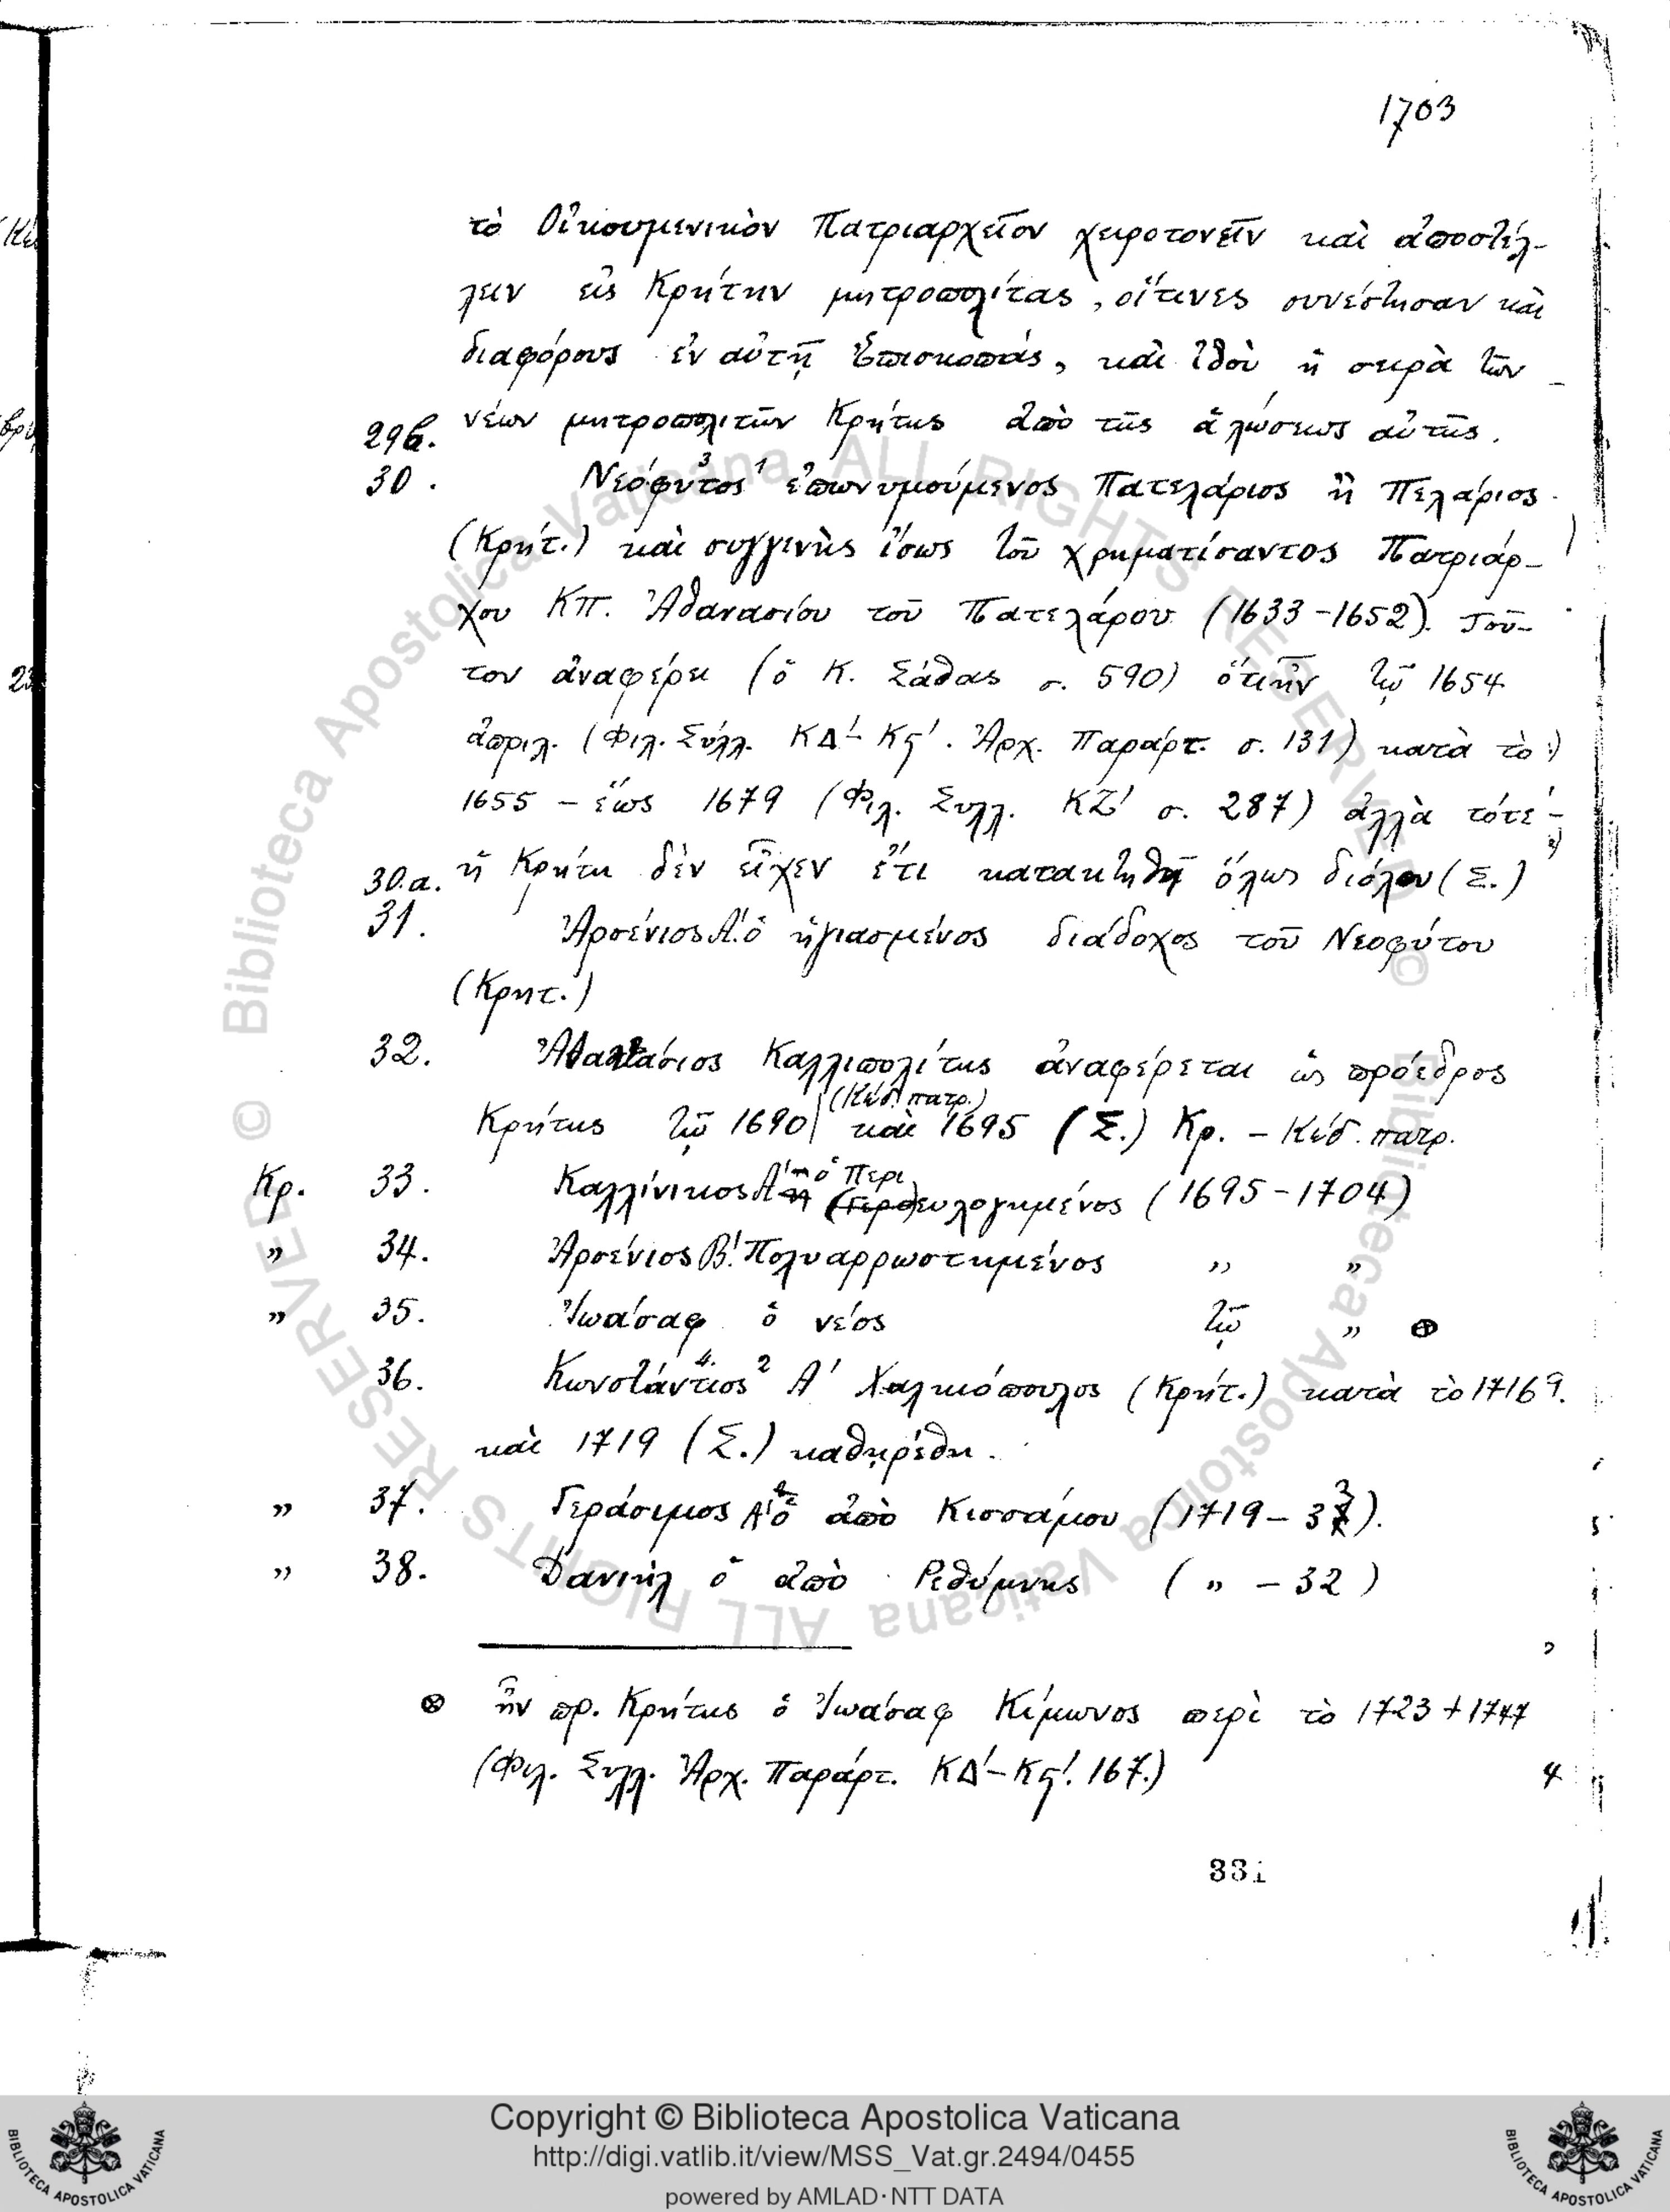 1703
τὸ Οἰκουμενικὸν Πατριαρχεῖον χειροτονεῖν καὶ ἀποστέλ-
λειν εἰς Κρήτην μητροπολίτας, οἵτινες συνέστησαν καὶ
διαφόρους ἐν αὐτῇ Ἐπισκοπάς, καὶ ἰδοὺ ἡ σειρὰ τῶν
29β. νέων μητροπολιτῶν Κρήτης ἀπὸ τῆς ἁλώσεως αὐτῆς.
30. Νεόφυτος ἐπωνυμούμενος Πατελάριος ἢ Πελάριος
(Κρήτ.) καὶ συγγενὴς ἴσως τοῦ χρηματίσαντος Πατριάρ-
χου ΚΠ. Ἀθανασίου τοῦ Πατελάρου (1633-1652). Τοῦ-
τον ἀναφέρει (ὁ Κ. Σάθας σ. 590) ὅτι ἦν τῷ 1654
ἀπριλ. (Φιλ. Σύλλ. ΚΔ'-Κϛ'. Ἀρχ. Παράρτ. σ. 131) κατὰ τὸ
1655 - ἕως 1679 (Φιλ. Συλλ. ΚΖ' σ. 287) ἀλλὰ τότε
30.α. ἡ Κρήτη δὲν εἶχεν ἔτι κατακτηθῆ ὅλως διόλου (Σ.)
31. Ἀρσένιος Α'. ὁ ἡγιασμένος διάδοχος τοῦ Νεοφύτου
(Κρητ.)
32. Καλλιπολίτης ἀναφέρεται ὡς πρόεδρος
(Κώδ. πατρ.)
Κρήτης τῷ 1690 καὶ 1695 (Σ.) Κρ. - Κώδ. πατρ.
Κρ. 33. Καλλίνικος Α' ὁ Περιευλογημένος (1695-1704)
" 34. Ἀρσένιος Β'. Πολυαρρωστημένος " "
" 35. Ἰωάσαφ ὁ νέος τῷ " ⊗
36. Κωνστάντιος Α' Χαλκιόπουλος (Κρήτ.) κατὰ τὸ 17169.
καὶ 1719 (Σ.) καθῃρέθη.
" 37. Γεράσιμος Α' ὁ ἀπὸ Κισσάμου (1719-32).
" 38. Δανιὴλ ὁ ἀπὸ Ρεθύμνης ( " - 32)
⊗ ἦν πρ. Κρήτης ὁ Ἰωάσαφ Κίμωνος περὶ τὸ 1723 + 1747
(Φιλ. Συλλ. Ἀρχ. Παράρτ. ΚΔ'-Κϛ'. 167.)
331
© Biblioteca Apostolica Vaticana ALL RIGHTS RESERVED © Biblioteca Apostolica Vaticana ALL RIGHTS RESERVED
Copyright © Biblioteca Apostolica Vaticana
http://digi.vatlib.it/view/MSS_Vat.gr.2494/0455
powered by AMLAD·NTT DATA
BIBLIOTECA APOSTOLICA VATICANA
BIBLIOTECA APOSTOLICA VATICANA